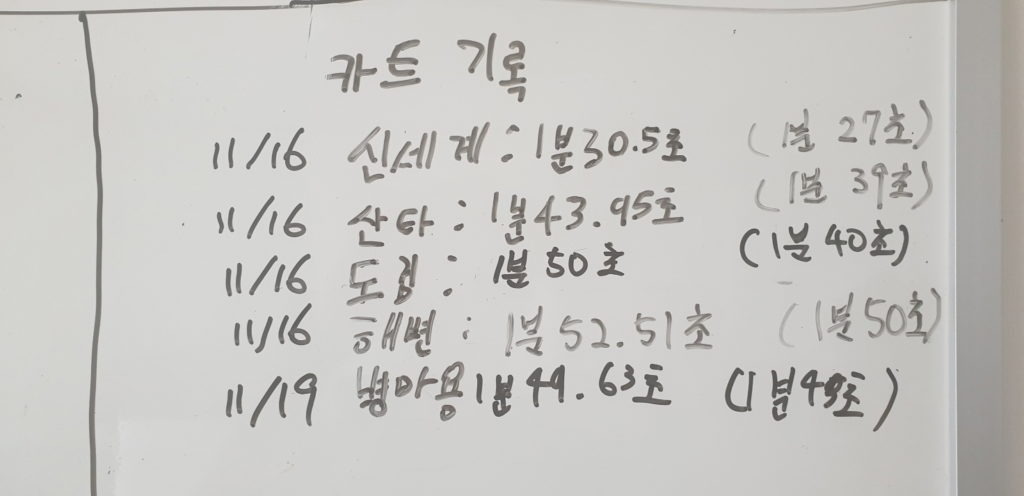 카트 기록
11/16 신세계 : 1분30.5초 (1분 27초)
11/16 산타 : 1분43.95초 (1분 39초)
11/16 도검 : 1분 50초 (1분 40초)
11/16 해변 : 1분 52.51초 (1분 50초)
11/19 병마용 1분 44.63초 (1분 43초)